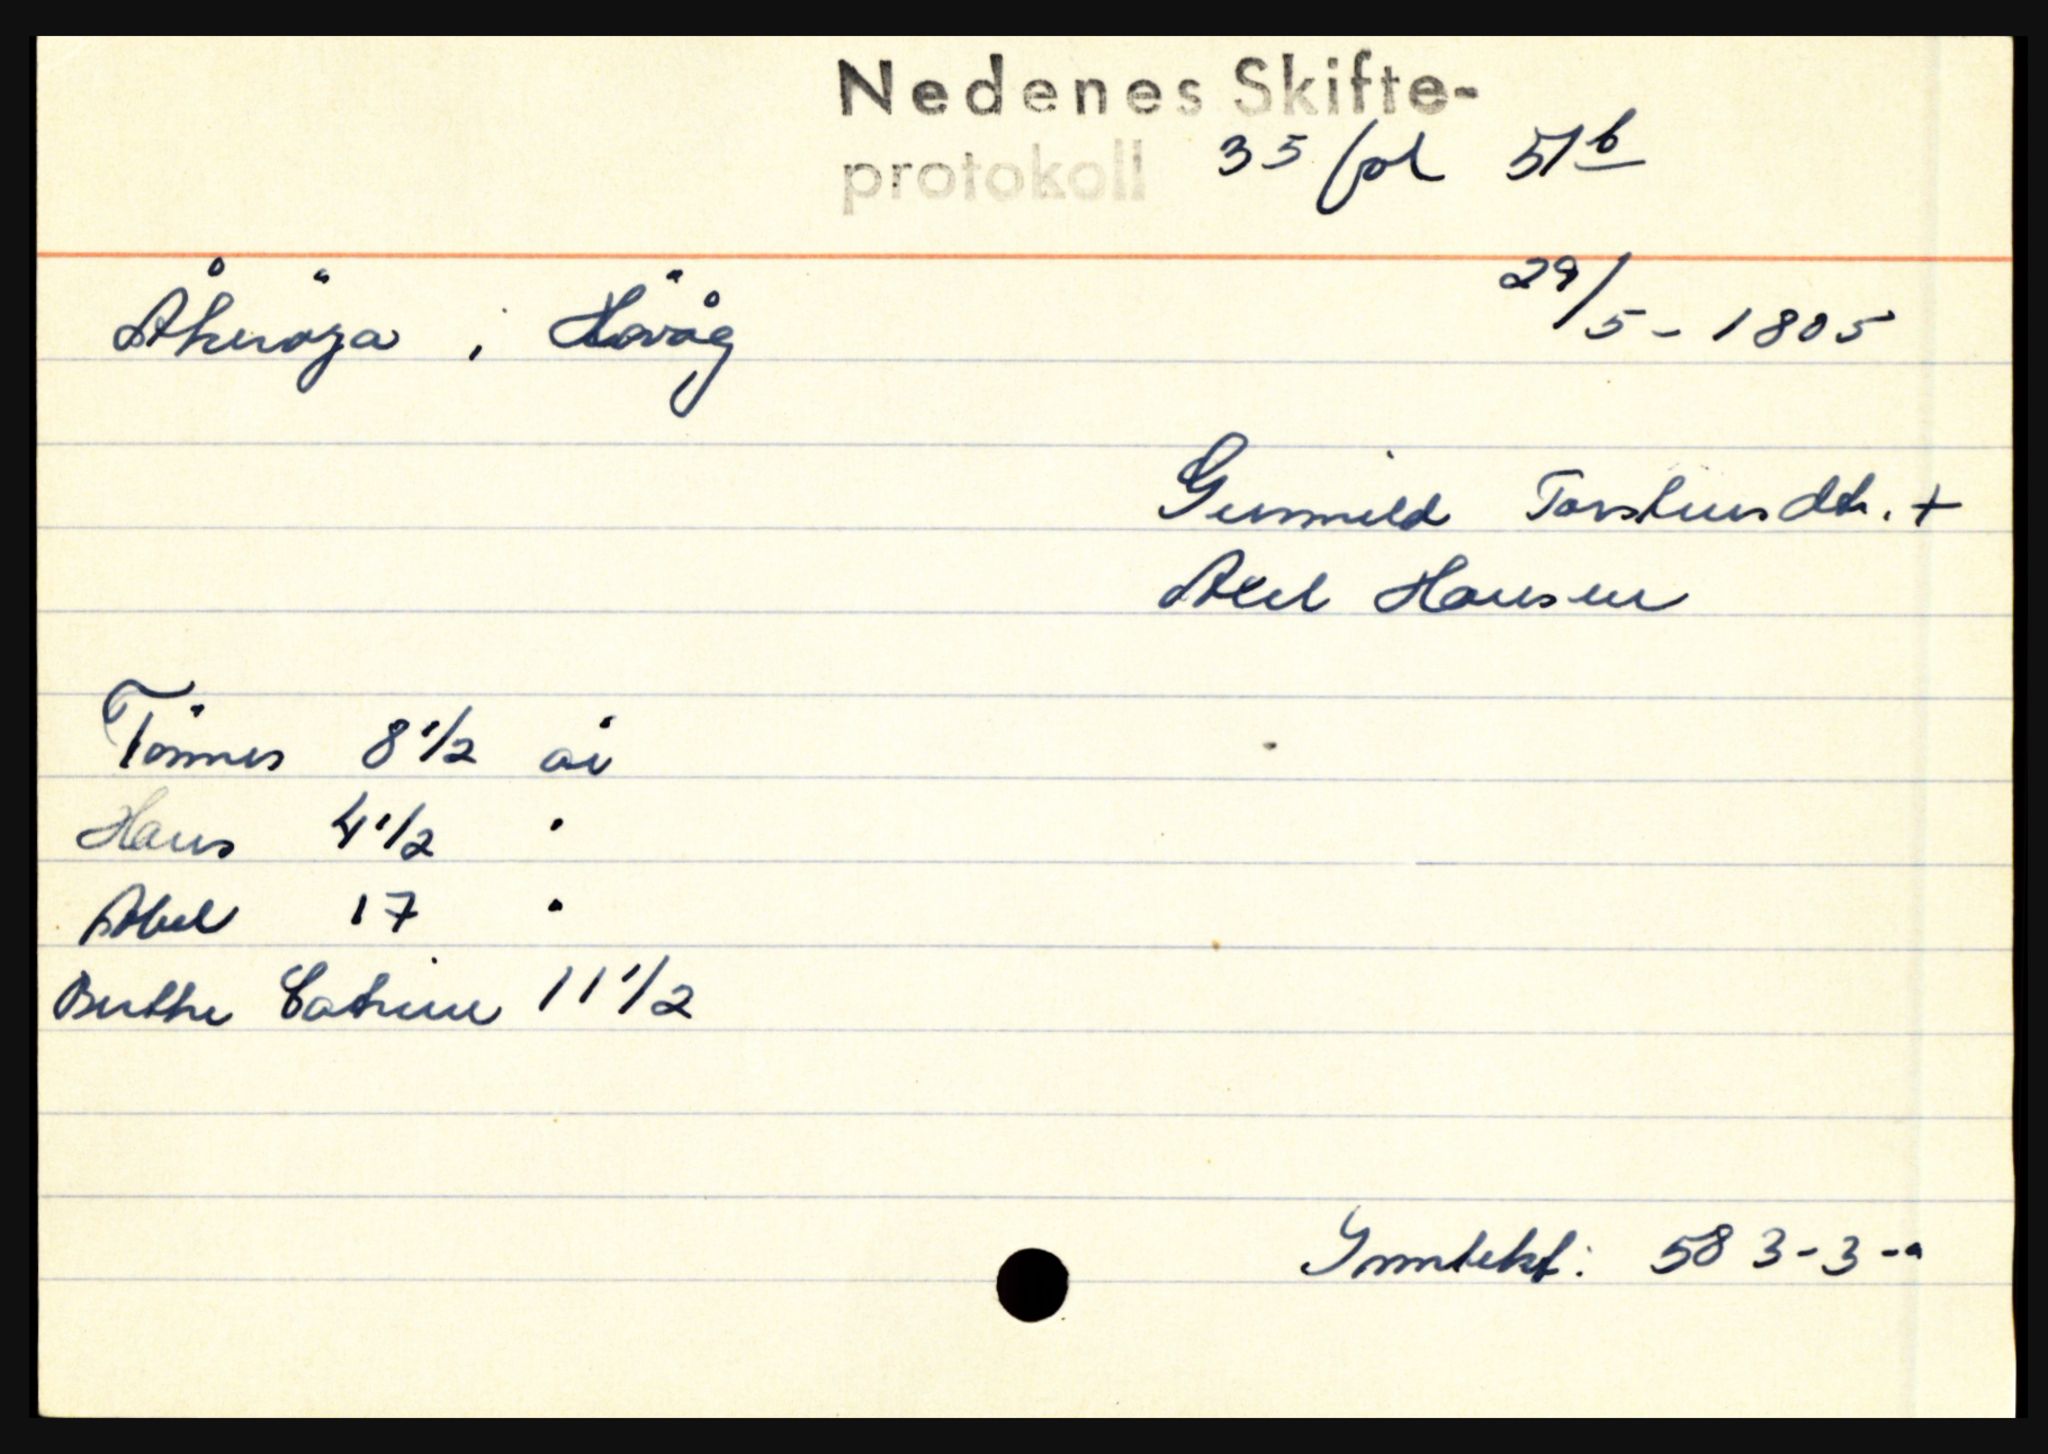 Nedenes Skifte-
protokoll 35 fol 51b
Åkerøya i Høvåg 29/5-1805
Gunnild Torsteinsdtr. +
Axel Hansen
Tønnes 8 1/2 år
Hans 4 1/2 "
Abel 17 "
Berthe Catrine 11 1/2
Inntekt: 583-3-"